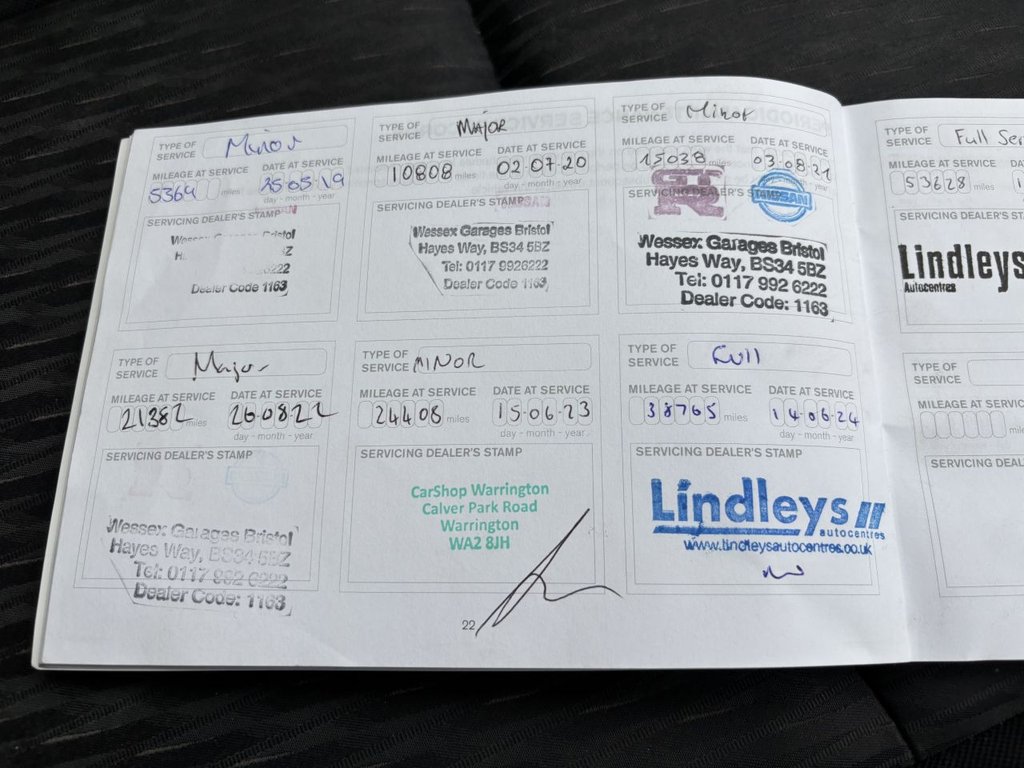 TYPE OF SERVICE Minor
MILEAGE AT SERVICE DATE AT SERVICE
5364 miles 25-05-19
day - month - year
SERVICING DEALER'S STAMP
Wessex Garages Bristol
Dealer Code 1163
TYPE OF SERVICE MAJOR
MILEAGE AT SERVICE DATE AT SERVICE
10808 miles 02-07-20
day - month - year
SERVICING DEALER'S STAMP
NISSAN
Wessex Garages Bristol
Hayes Way, BS34 5BZ
Tel: 0117 9926222
Dealer Code 1163
TYPE OF SERVICE Minor
MILEAGE AT SERVICE DATE AT SERVICE
15038 miles 03-08-21
year
SERVICING DEALER'S STAMP
GTR NISSAN
Wessex Garages Bristol
Hayes Way, BS34 5BZ
Tel: 0117 992 6222
Dealer Code: 1163
TYPE OF SERVICE Full Ser
MILEAGE AT SERVICE
53628 miles
SERVICING DEALER'S STA
Lindleys
Autocentres
TYPE OF SERVICE Major
MILEAGE AT SERVICE DATE AT SERVICE
21382 miles 26-08-22
day - month - year
SERVICING DEALER'S STAMP
Wessex Garages Bristol
Hayes Way, BS34 5BZ
Tel: 0117 992 6222
Dealer Code: 1163
TYPE OF SERVICE MINOR
MILEAGE AT SERVICE DATE AT SERVICE
24408 miles 15-06-23
day - month - year
SERVICING DEALER'S STAMP
CarShop Warrington
Calver Park Road
Warrington
WA2 8JH
TYPE OF SERVICE Full
MILEAGE AT SERVICE DATE AT SERVICE
38765 miles 14-06-24
day - month - year
SERVICING DEALER'S STAMP
Lindleys
autocentres
www.lindleysautocentres.co.uk
TYPE OF SERVICE
MILEAGE AT SERVIC
SERVICING DEALER'S
22